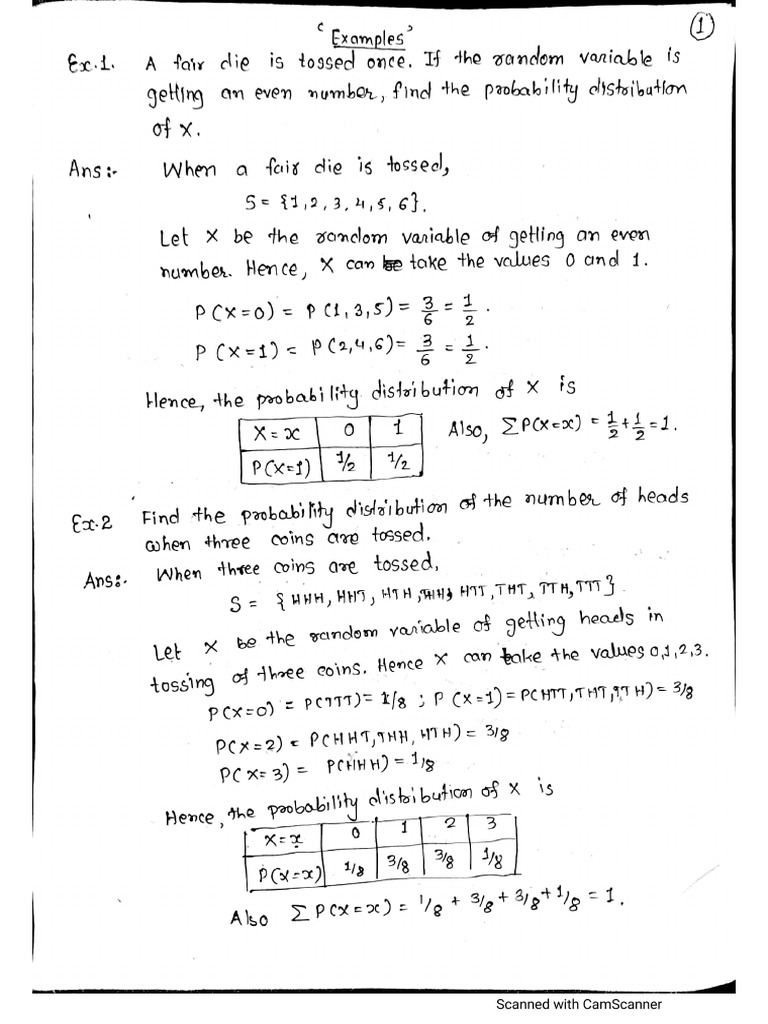 ①
‘Examples’
Ex.1. A fair die is tossed once. If the random variable is
getting an even number, find the probability distribution
of X.
Ans:- When a fair die is tossed,
S = {1, 2, 3, 4, 5, 6}.
Let X be the random variable of getting an even
number. Hence, X can take the values 0 and 1.
P(X=0) = P(1,3,5) = 3/6 = 1/2.
P(X=1) = P(2,4,6) = 3/6 = 1/2.
Hence, the probability distribution of X is
X=x 0 1 Also, ΣP(X=x) = 1/2 + 1/2 = 1.
P(X=1) 1/2 1/2
Ex.2 Find the probability distribution of the number of heads
when three coins are tossed.
Ans:- When three coins are tossed,
S = {HHH, HHT, HTH, THH, HTT, THT, TTH, TTT}
Let X be the random variable of getting heads in
tossing of three coins. Hence X can take the values 0,1,2,3.
P(X=0) = P(TTT) = 1/8 ; P(X=1) = P(HTT, THT, TTH) = 3/8
P(X=2) = P(HHT, THH, HTH) = 3/8
P(X=3) = P(HHH) = 1/8
Hence, the probability distribution of X is
X=x 0 1 2 3
P(X=x) 1/8 3/8 3/8 1/8
Also ΣP(X=x) = 1/8 + 3/8 + 3/8 + 1/8 = 1.
Scanned with CamScanner